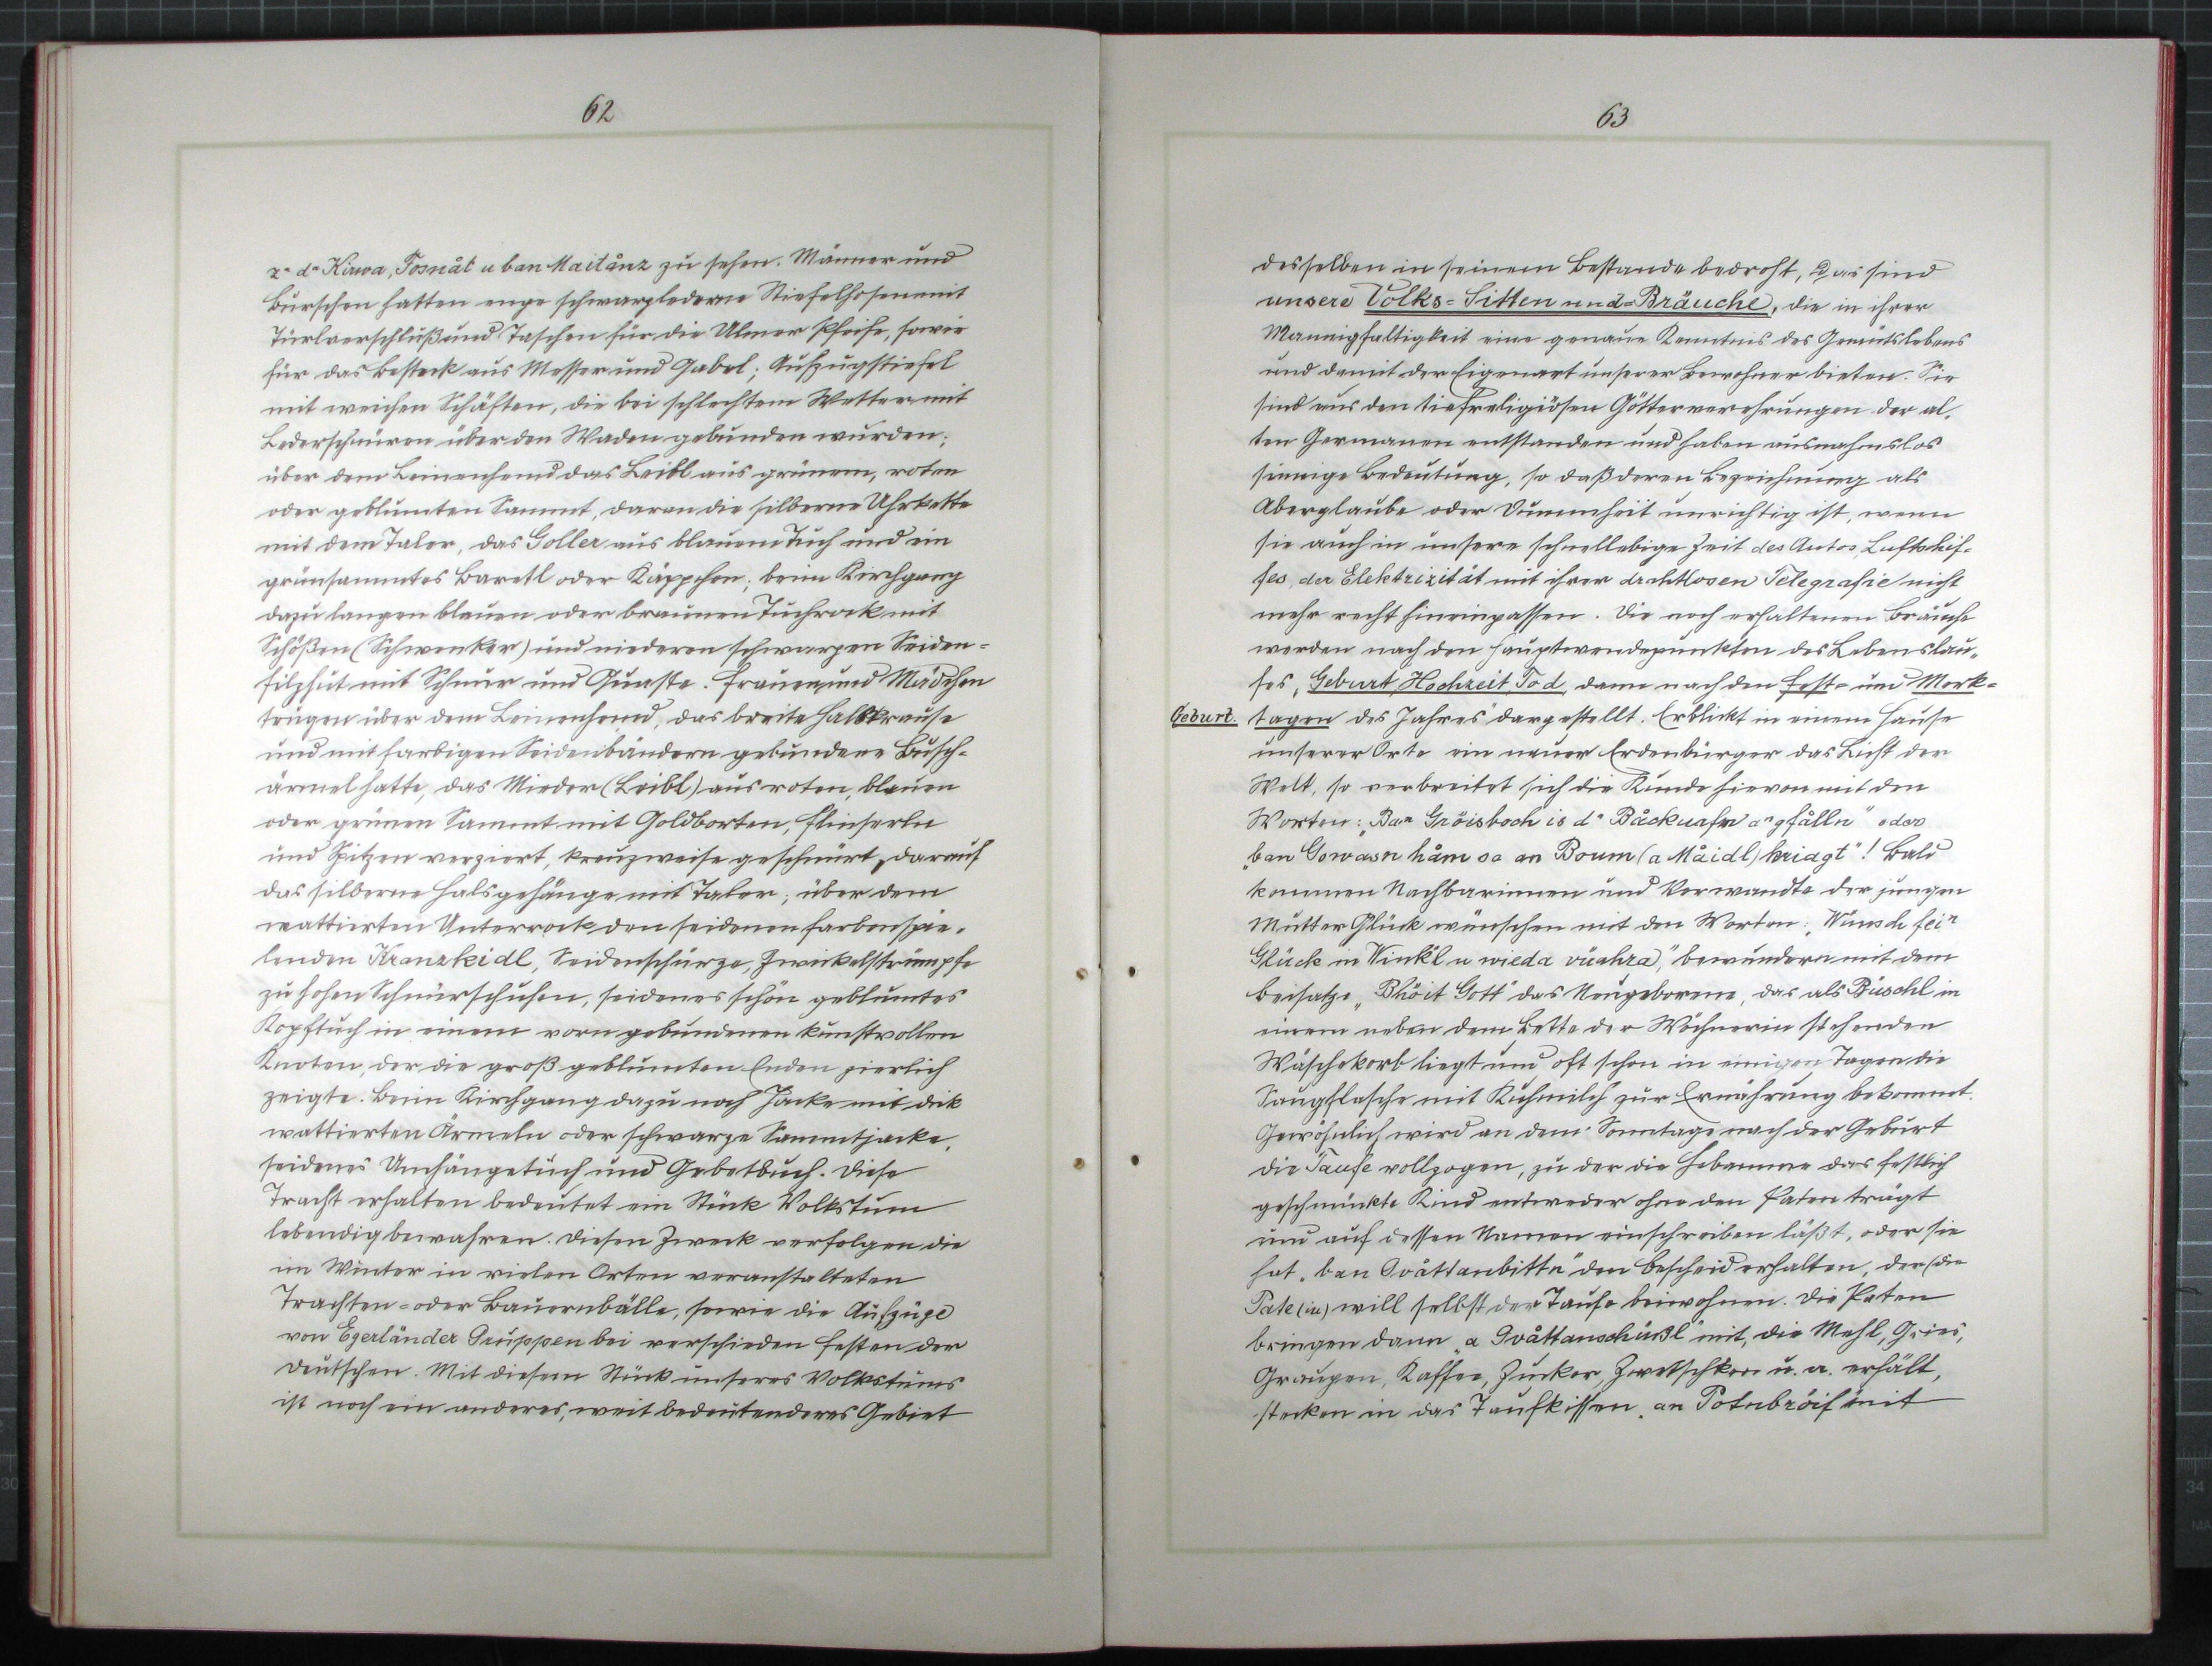 62
z' d' Kirwa, Fosnåt u ban Maitånz zu sehen. Männer und
Burschen hatten enge schwarzlederne Stiefelhosen mit
Türlverschluß und Taschen für die Ulmer Pfeife, sowie
für das Besteck aus Messer und Gabel; Aufzugstiefel
mit weichen Schäften, die bei schlechtem Wetter mit
Lederschnüren über den Waden gebunden wurden;
über dem Leinenhemd das Leibl aus grünem, roten
oder geblumten Sammt, daran die silberne Uhrkette
mit dem Taler, das Goller aus blauem Tuch und ein
grünsammtes Baretl oder Käppchen; beim Kirchgang
dazu langen blauen oder braunen Tuchrock mit
Schößen (Schwenker) und niederen schwarzen Seiden-
filzhut mit Schnur und Quaste. Frauen und Mädchen
trugen über dem Leinenhemd, das breite Halskrause
und mit farbigen Seidenbändern gebundene Busch-
ärmel hatte, das Mieder (Leibl) aus roten, blauen
oder grünen Sammt mit Goldborten, Flinserln
und Spitzen verziert, kreuzweise geschnürt, darauf
das silberne Halsgehänge mit Taler; über dem
wattierten Unterrock den seidenen farbenspie-
lenden Kranzkidl, Seidenschürze, Zwickelstrümpfe
zu hohen Schnürschuhen, seidenes schön geblumtes
Kopftuch in einem vorn gebundenen kunstvollen
Knoten, der die groß geblumten Enden zierlich
zeigte. Beim Kirchgang dazu noch Jacke mit dick
wattierten Ärmeln oder schwarze Sammtjacke,
seidenes Umhängetuch und Gebetbuch. Diese
Tracht erhalten bedeutet ein Stück Volkstum
lebendig bewahren. Diesen Zweck verfolgen die
im Winter in vielen Orten veranstalteten
Trachten- oder Bauernbälle, sowie die Aufzüge
von Egerländer Gruppen bei verschieden Festen der
Deutschen. Mit diesem Stück unseres Volkstums
ist noch ein anderes, weit bedeutenderes Gebiet
63
desselben in seinem Bestande bedroht, Das sind
unsere Volks-Sitten und-Bräuche, die in ihrer
Mannigfaltigkeit eine genaue Kenntnis des Gemütslebens
und damit der Eigenart unserer Bewohner bieten. Sie
sind aus den tiefreligiösen Götterverehrungen der al-
ten Germanen entstanden und haben ausnahmslos
sinnige Bedeutung, so daß deren Bezeichnung als
Aberglaube oder Dummheit unrichtig ist, wenn
sie auch in unsere schnellebige Zeit des Autos, Luftschif-
fes, der Elektrizität mit ihrer drahtlosen Telegrafie nicht
mehr recht hineinpassen. Die noch erhaltenen Bräuche
werden nach den Hauptwendepunkten des Lebenslau-
fes, Geburt, Hochzeit Tod, dann nach den Fest- und Merk-
Geburt. tagen des Jahres dargestellt. Erblickt in einem Hause
unserer Orte ein neuer Erdenbürger das Licht der
Welt, so verbreitet sich die Kunde hievon mit den
Worten: „Ban Gröisboch is d' Båckuafn a'gfålln" oder
„ban Gowasn håm sa an Boum (a Måidl) kriagt"! Bald
kommen Nachbarinnen und Verwandte der jungen
Mutter Glück wünschen mit den Worten: „Wünsch fei'
Glück in Winkl u wieda vüahra", bewundern mit dem
Beisatze „Bhöit Gott" das Neugeborene, das als Büschl in
einem neben dem Bette der Wöchnerin stehenden
Wäschekorb liegt und oft schon in einigen Tagen die
Saugflasche mit Kuhmilch zur Ernährung bekommt.
Gewöhnlich wird an dem Sonntage nach der Geburt
die Taufe vollzogen, zu der die Hebamme das festlich
geschmückte Kind entweder ohne den Paten trägt
und auf dessen Namen einschreiben läßt, oder sie
hat „ban Gvåttanbittn" den Bescheid erhalten, der (die
Pate (in) will selbst der Taufe beiwohnen. Die Paten
bringen dann „a Gvåttanschüßl" mit, die Mehl, Gries,
Graupen, Kaffee, Zucker, Zwetschken u. a. erhält,
stecken in das Taufkissen „an Potnbröif" mit